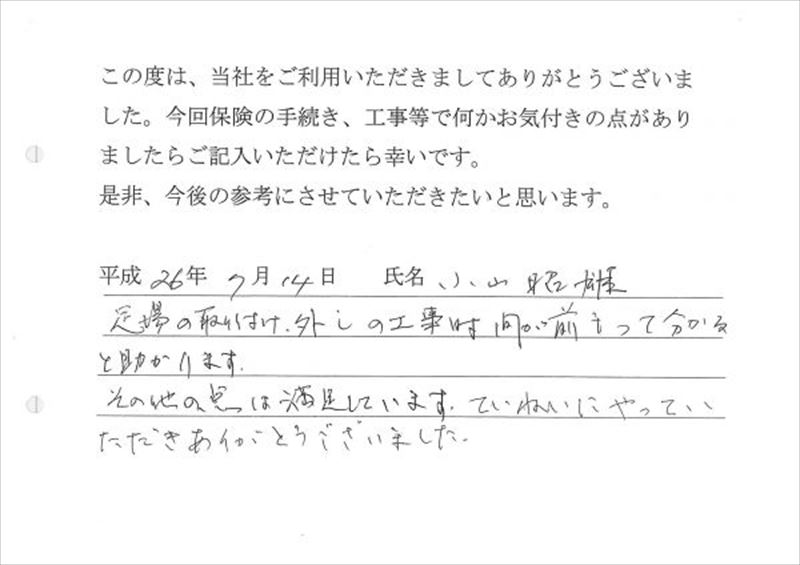 この度は、当社をご利用いただきましてありがとうございま
した。今回保険の手続き、工事等で何かお気付きの点があり
ましたらご記入いただけたら幸いです。
是非、今後の参考にさせていただきたいと思います。
平成 26年 7月 14日 氏名 小山 昭雄
足場の取り付け、外しの工事時間が前もって分かる
と助かります。
その他の点は満足しています。ていねいにやってい
ただきありがとうございました。